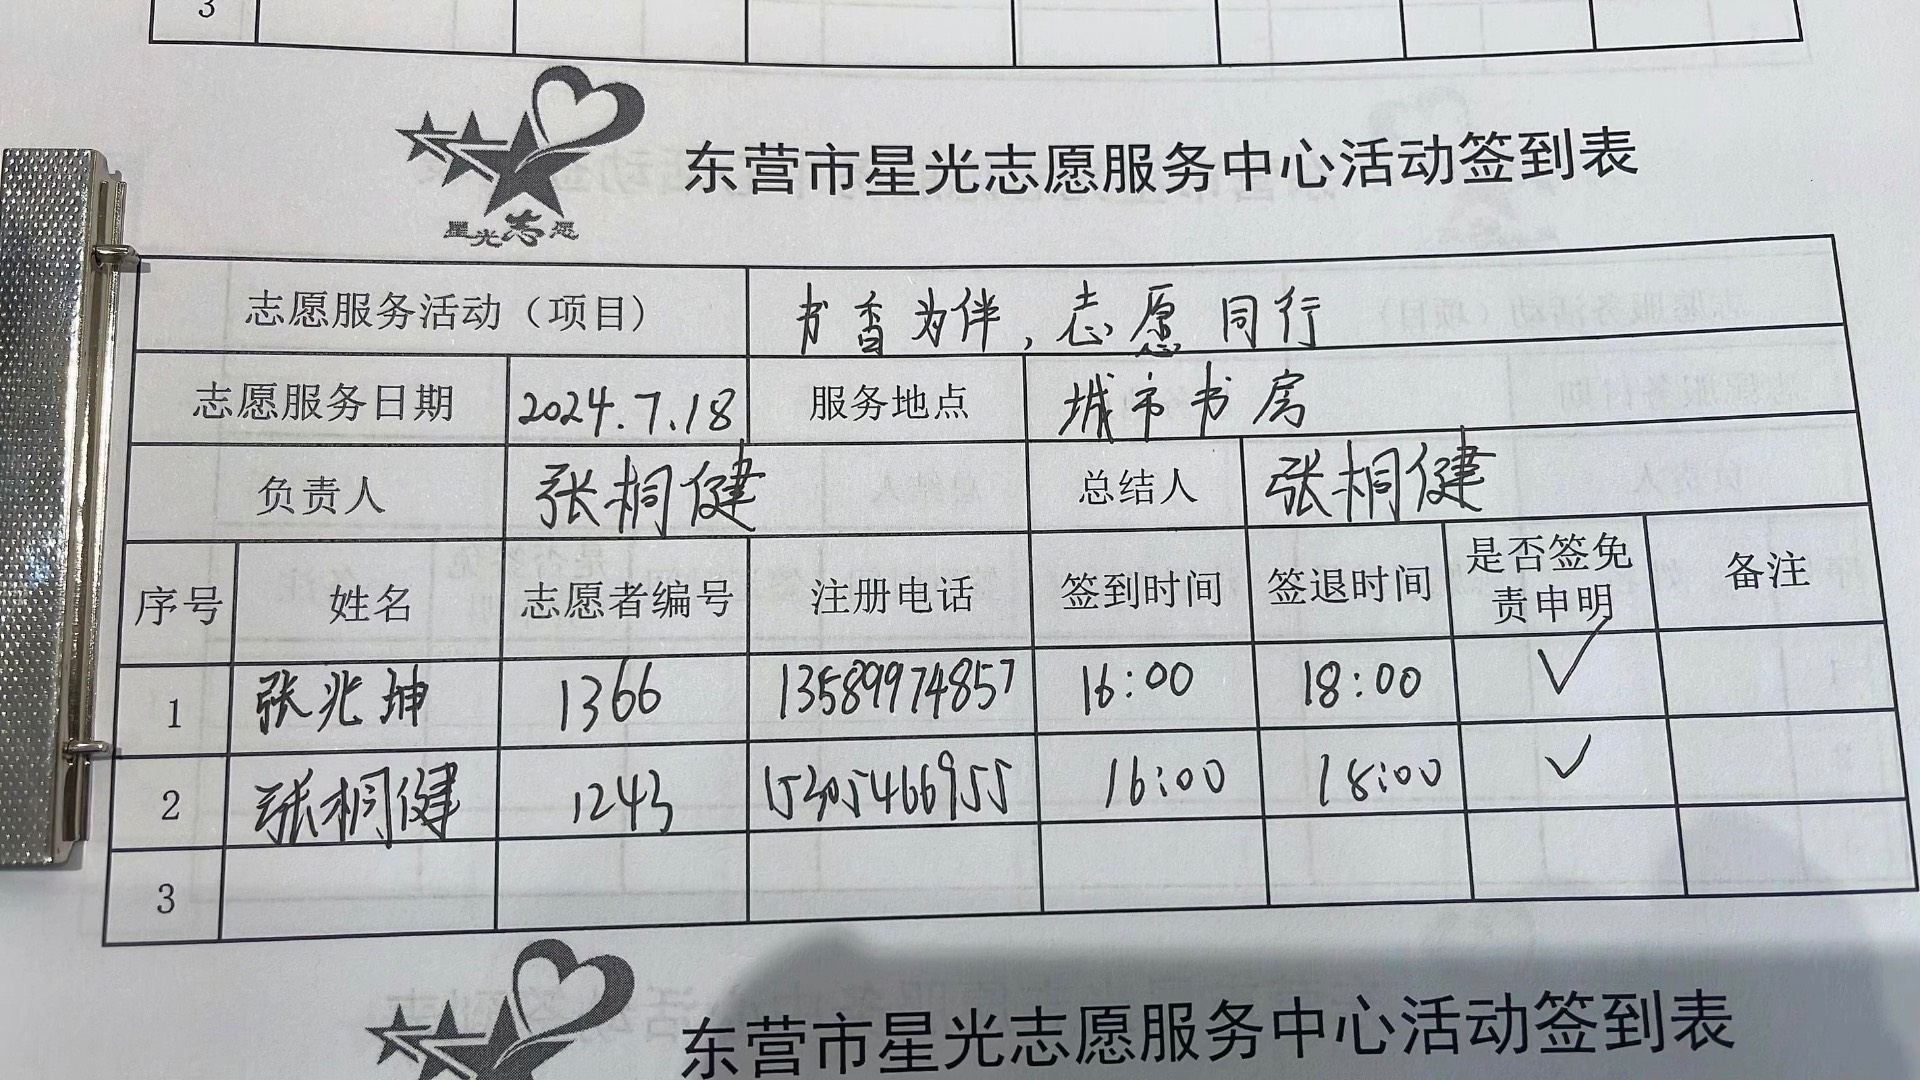 3
东营市星光志愿服务中心活动签到表
星光志愿
志愿服务活动（项目） 书香为伴，志愿同行
志愿服务日期 2024.7.18 服务地点 城市书房
负责人 张桐健 总结人 张桐健
序号 姓名 志愿者编号 注册电话 签到时间 签退时间 是否签免责申明 备注
1 张兆坤 1366 13589974857 16:00 18:00 ✓
2 张桐健 1243 15305466955 16:00 18:00 ✓
3
东营市星光志愿服务中心活动签到表